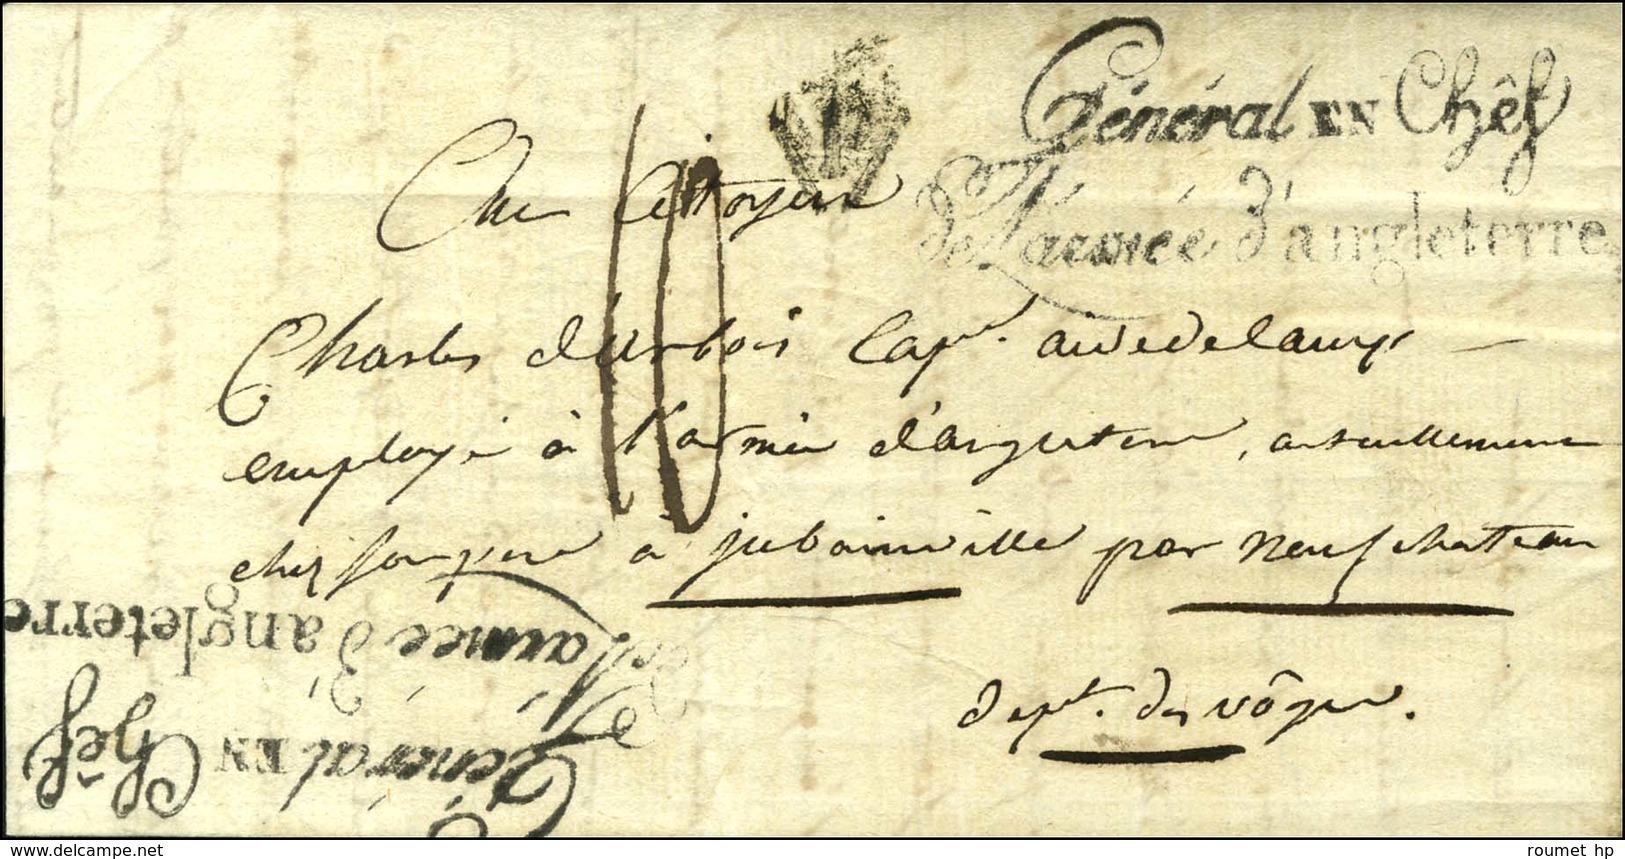 Général EN Chêf
de L'armée d'angleterre
P
Au Citoyen
Charles durbois Cap.ne aidedecamp
employé à l'armée d'angleterre, actuellement
chez son père à jubainville par neufchateau
dept. des vôges.
Général EN Chêf
de L'armée d'angleterre
www.delcampe.net
roumet hp